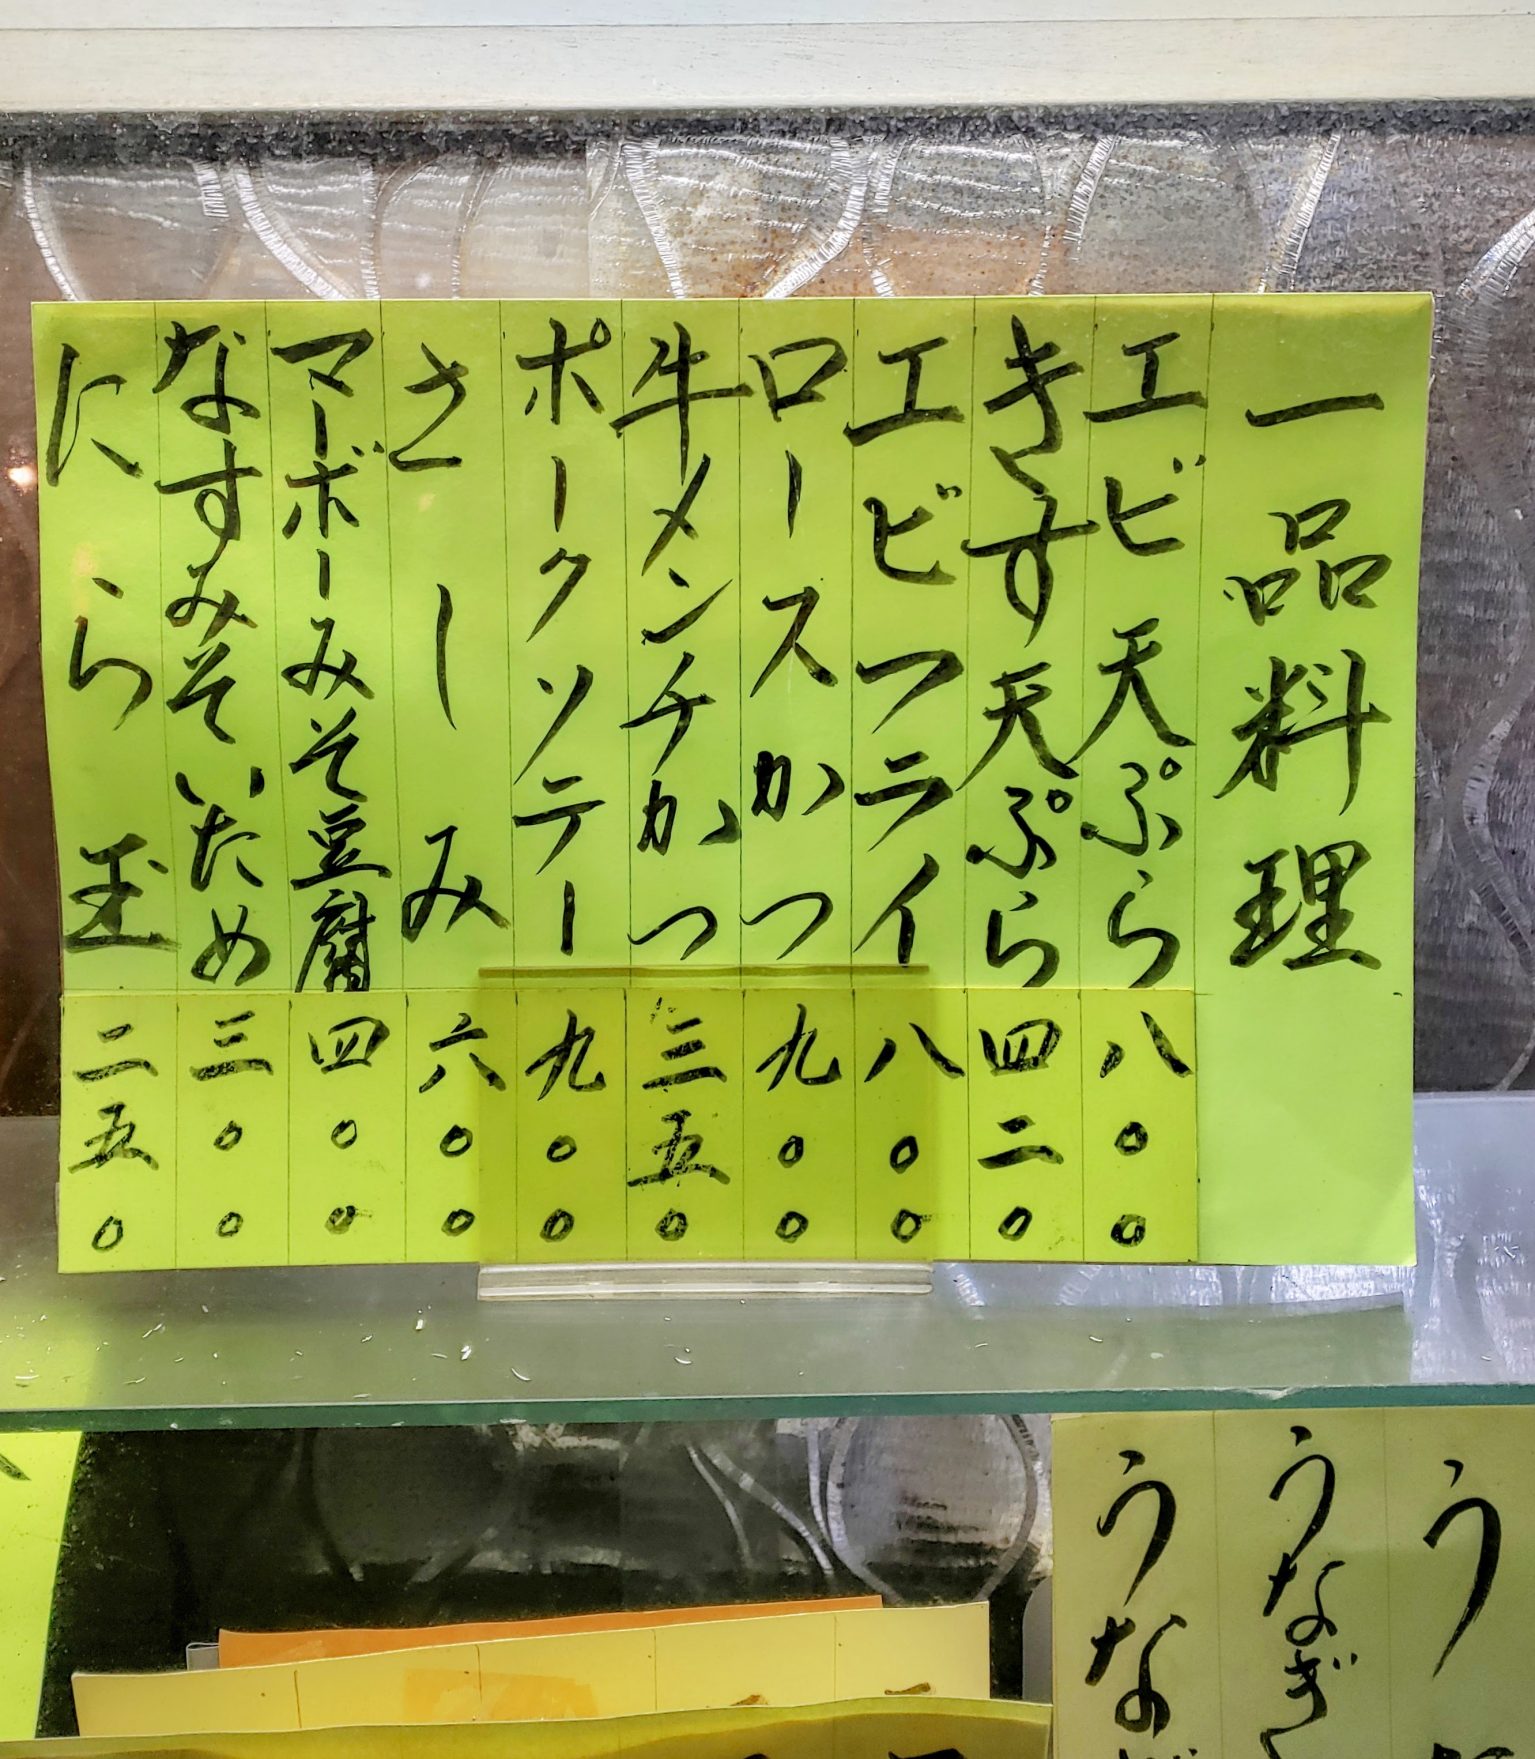 一品料理
エビ天ぷら 八〇〇
きす天ぷら 四二〇
エビフライ 八〇〇
ロースかつ 九〇〇
牛メンチかつ 三五〇
ポークソテー 九〇〇
さしみ 六〇〇
マーボーみそ豆腐 四〇〇
なすみそいため 三〇〇
にら玉 二五〇
う
うなぎ
うな